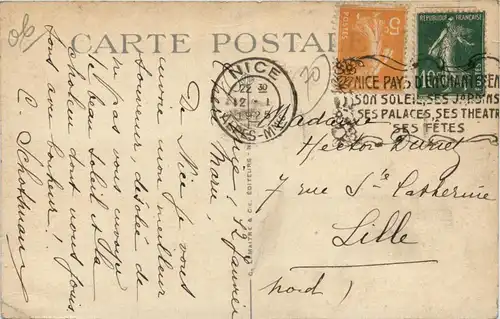 CARTE POSTALE
POSTES
5c
RÉPUBLIQUE FRANÇAISE
10
NICE
22 30
12 - 1
ALPES-MMES
NICE PAYS D'ENCHANTEMENT
SON SOLEIL, SES JARDINS
SES PALACES, SES THEATRES
SES FÊTES
70
Nice, 12 Janvier
De Nice je vous
envoie mon meilleur
souvenir, désolée de
ne pas vous envoyer
le beau soleil et la
chaleur dont nous jouis
sons avec bonheur!
C. Schotsman
Madame
Hector
7 rue Ste Catherine
Lille
Nord)